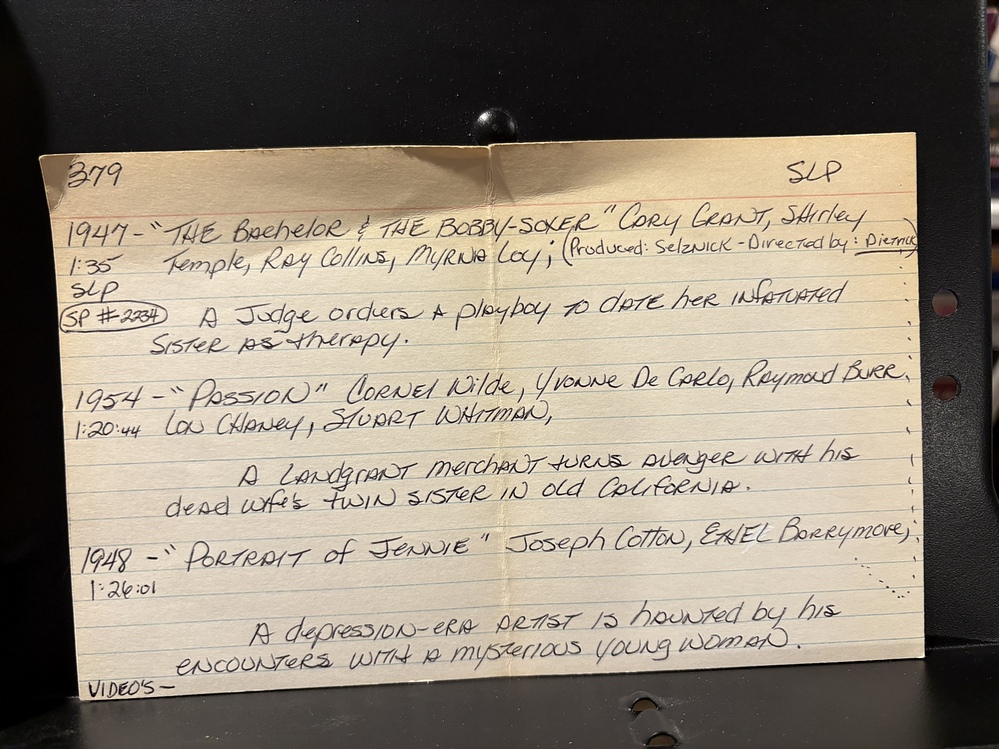 379 SLP
1947 - "THE BACHELOR & THE BOBBY-SOXER" CARY GRANT, SHIRLEY
1:35 TEMPLE, RAY COLLINS, MYRNA LOY; (PRODUCED: SELZNICK - DIRECTED BY: DIETRICK)
SLP
SP #2234 A JUDGE ORDERS A PLAYBOY TO DATE HER INFATUATED
SISTER AS THERAPY.
1954 - "PASSION" CORNEL WILDE, YVONNE DE CARLO, RAYMOND BURR,
1:20:44 LON CHANEY, STUART WHITMAN,
A LANDGRANT MERCHANT TURNS AVENGER WITH HIS
DEAD WIFE'S TWIN SISTER IN OLD CALIFORNIA.
1948 - "PORTRAIT OF JENNIE" JOSEPH COTTON, ETHEL BARRYMORE,
1:26:01
A DEPRESSION-ERA ARTIST IS HAUNTED BY HIS
ENCOUNTERS WITH A MYSTERIOUS YOUNG WOMAN.
VIDEO'S -